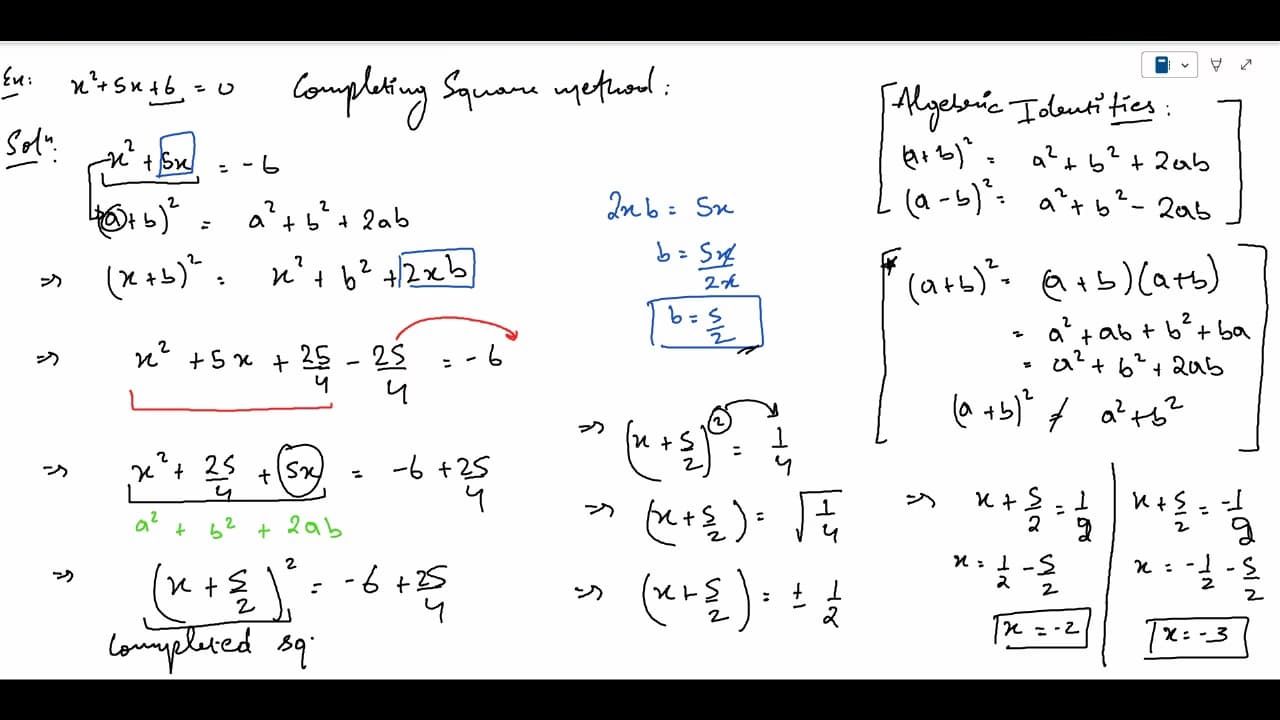 Ex: x²+5x+6 = 0 Completing Square method:
Solⁿ:
x² + 5x = -6
(a+b)² = a² + b² + 2ab
⇒ (x+b)² = x² + b² + 2xb
⇒ x² + 5x + 25/4 - 25/4 = -6
⇒ x² + 25/4 + 5x = -6 + 25/4
a² + b² + 2ab
⇒ (x + 5/2)² = -6 + 25/4
Completed sq.
2xb = 5x
b = 5x/2x
b = 5/2
⇒ (x + 5/2)² = 1/4
⇒ (x + 5/2) = √1/4
⇒ (x + 5/2) = ± 1/2
[Algebric Identities:
(a+b)² = a² + b² + 2ab
(a-b)² = a² + b² - 2ab]
[* (a+b)² = (a+b)(a+b)
= a² + ab + b² + ba
= a² + b² + 2ab
(a+b)² ≠ a²+b²]
⇒ x + 5/2 = 1/2
x = 1/2 - 5/2
x = -2
x + 5/2 = -1/2
x = -1/2 - 5/2
x = -3